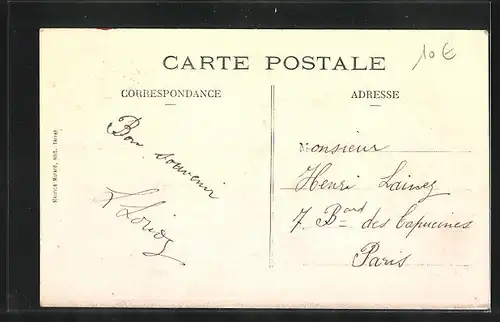 10 €
CARTE POSTALE
CORRESPONDANCE
ADRESSE
Bon souvenir
Monsieur
Henri Lainez
7. Bard des Capucines
Paris